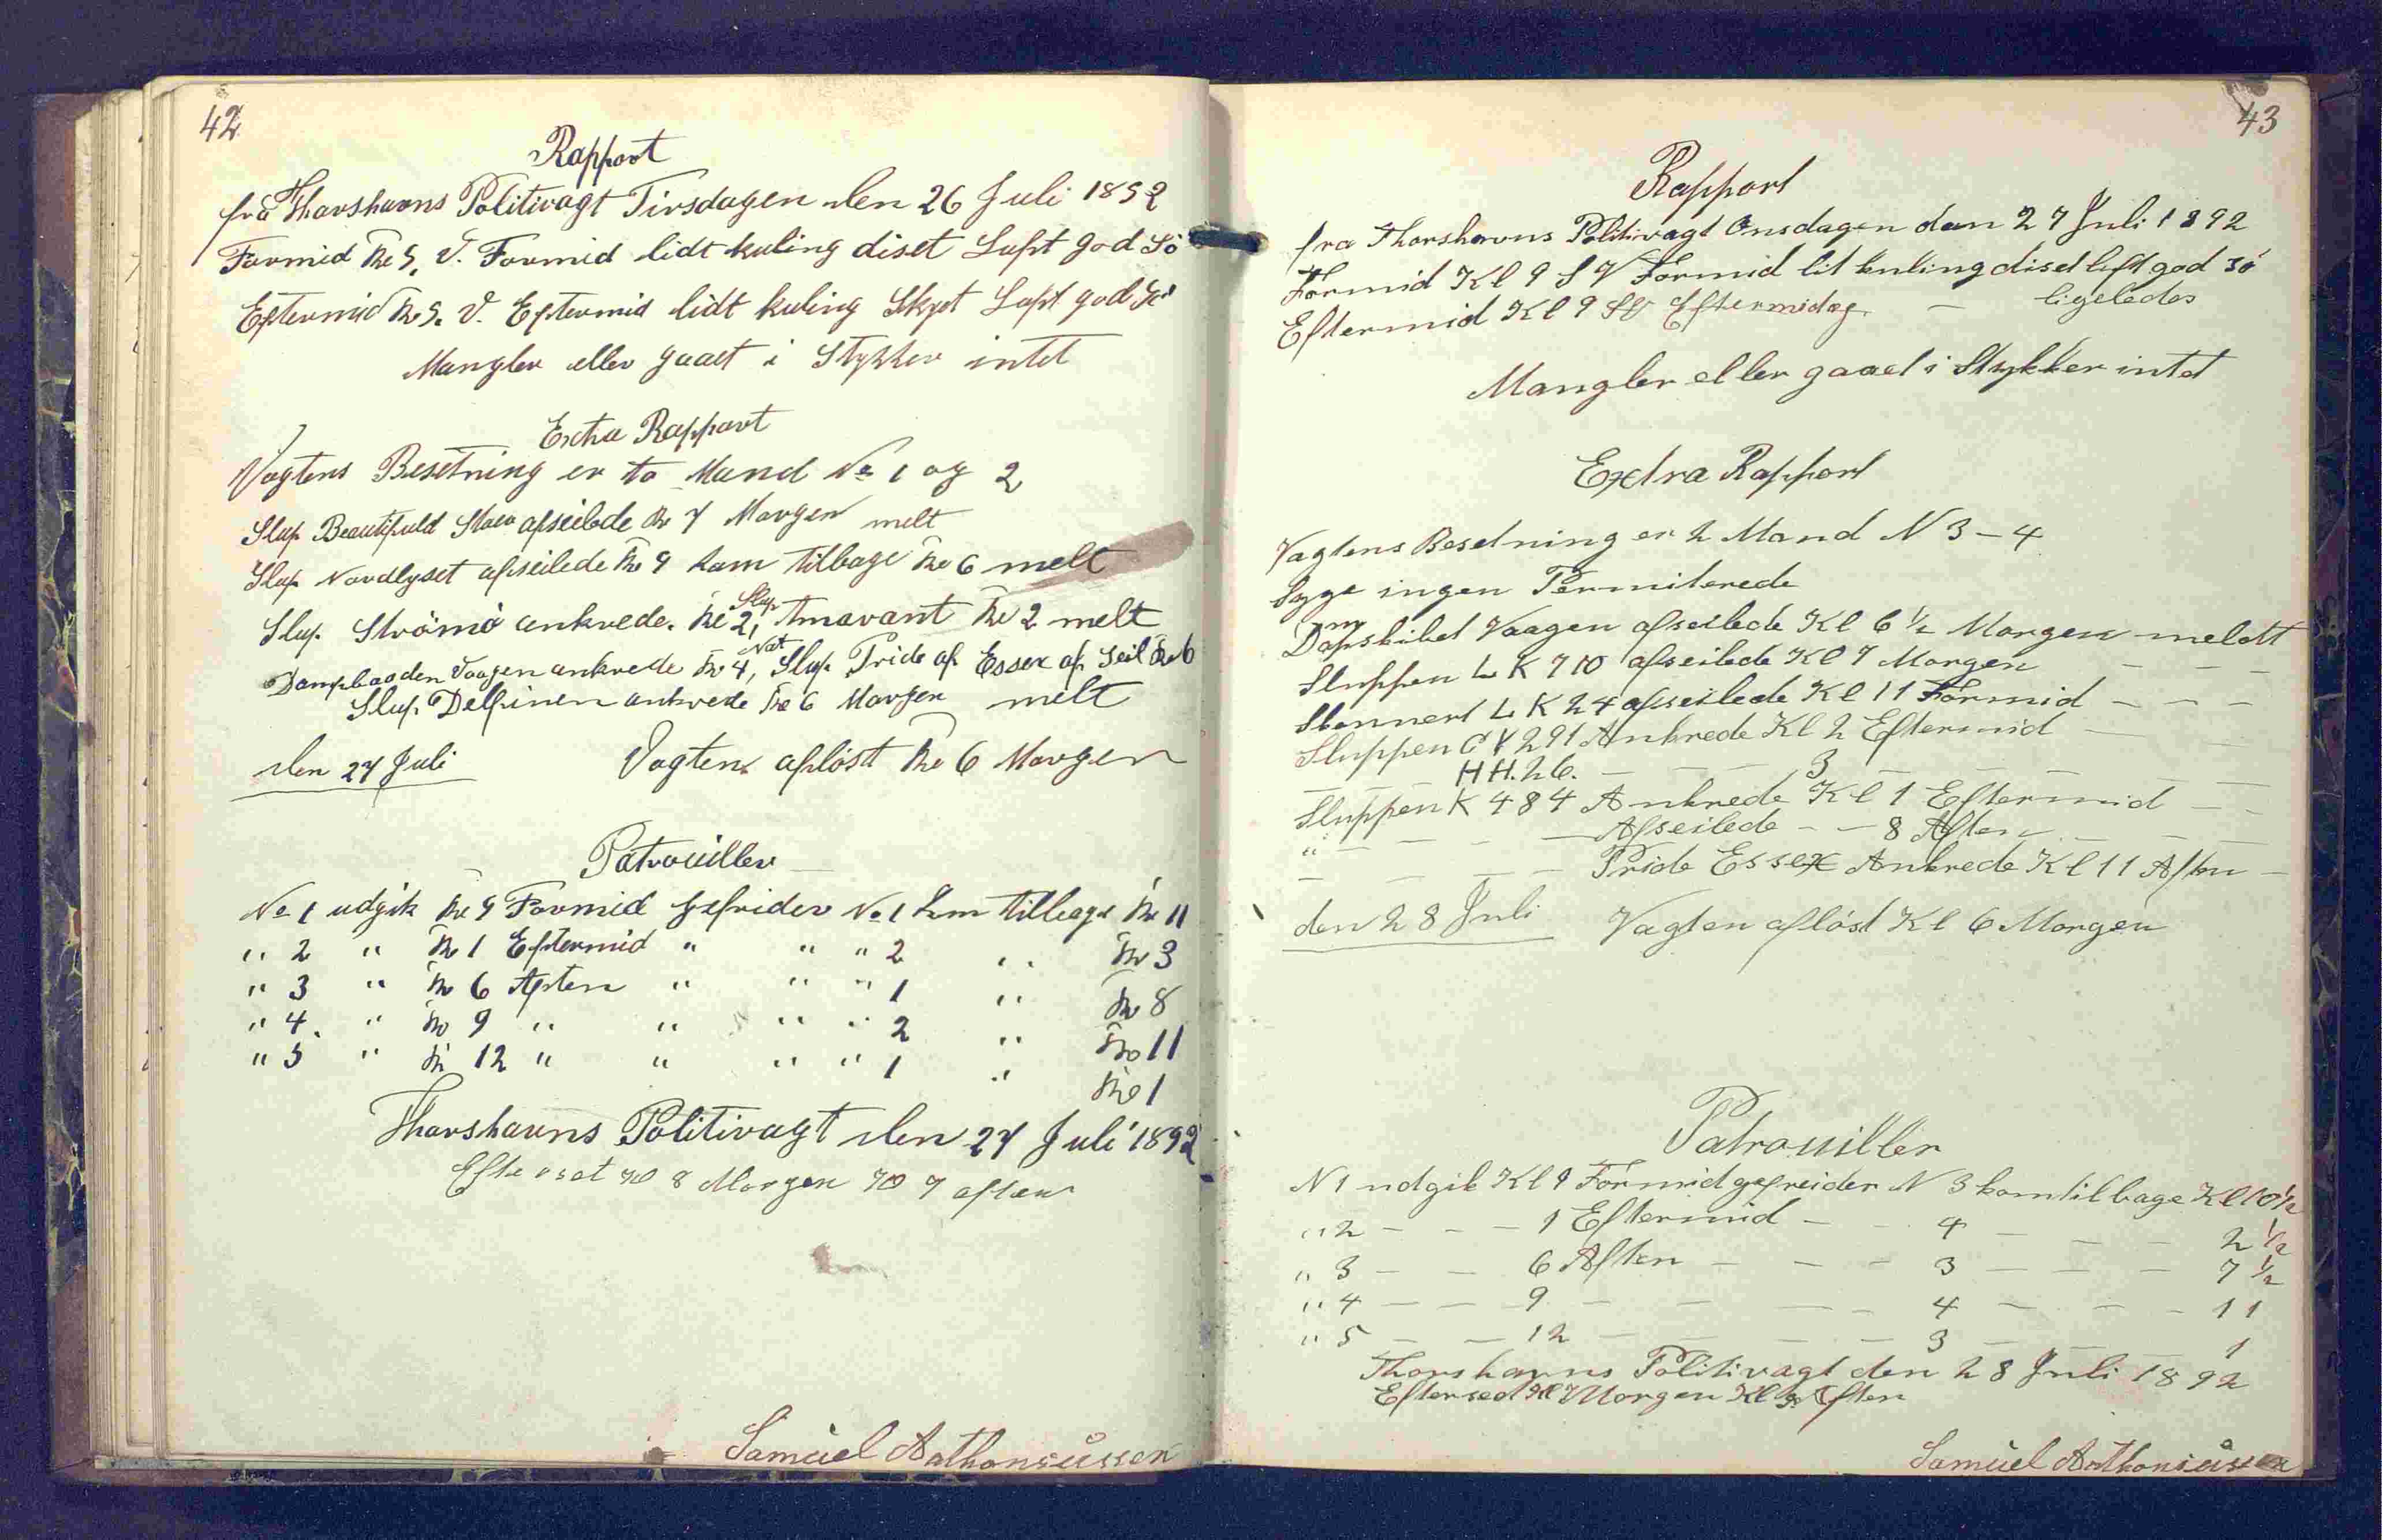 42
Rapport
fra Thorshavns Politivagt Tirsdagen den 26 Juli 1892
Formid Kl 9. V. Formid lidt kuling diset Luft god Sö
Eftermid Kl 9. V. Eftermid lidt kuling Skyet Luft god Sö
Mangler eller gaaet i Stykker intet
Extra Rapport
Vagtens Besetning er to Mand No 1 og 2
Slup Beautifuld Staer afseilede Kl 7 Morgen melt
Slup Nordlyset afseilede Kl 9 kam tilbage Kl 6 melt
Slup Strömö ankrede. Kl 2, Slup Amarant Kl 2 melt
Dampbaaden Vaagen ankrede Kl 4, Nat Slup Pride af Essex af Seil Kl 6
Slup Delfinen ankrede Kl 6 Morgen melt
den 27 Juli Vagten aflöst Kl 6 Morgen
Patrouiller
No 1 udgik Kl 9 Formid gefrider No 1 kom tilbage Kl 11
" 2 " Kl 1 Eftermid " " " 2 " Kl 3
" 3 " Kl 6 Aften " " " 1 " Kl 8
" 4. " Kl 9 " " " " 2 " Kl 11
" 5 " Kl 12 " " " " 1 " Kl 1
Thorshavns Politivagt den 27 Juli 1892
Efterset Kl 8 Morgen Kl 7 aften
Samuel Anthoniussen
43
Rapport
fra Thorshavns Politivagt Onsdagen den 27 Juli 1892
Formid Kl 9 S V Formid lit kuling diset luft god sö
Eftermid Kl 9 SV Eftermidag - ligeledes
Mangler eller gaaet i Stykker intet
Extra Rapport
Vagtens Besetning er 2 Mand N 3 - 4
Syge ingen Permiterede
Dampskibet Vaagen afseilede Kl 6 1/2 Morgen meldt
Sluppen L K 710 afseilede Kl 7 Morgen - - -
Skonnert L K 24 afseilede Kl 11 Formid - - -
Sluppen G V 291 Ankrede Kl 2 Eftermid - - -
- - HH. 26. - - - 3 - - - -
Sluppen K 484 Ankrede Kl 1 Eftermid - -
" - - - - Afseilede - - 8 Aften - - -
- - - - Pride Essex Ankrede Kl 11 Aften -
den 28 Juli Vagten aflöst Kl 6 Morgen
Patrouiller
N 1 udgik Kl 9 Formid gefreider N 3 kom tilbage Kl 10 1/2
" 2 - - - 1 Eftermid - - 4 - - - 2 1/2
" 3 - - 6 Aften - - - 3 - - - 7 1/2
" 4 - - 9 - - - - 4 - - - 11
" 5 - - 12 - - - - 3 - - - 1
Thorshavns Politivagt den 28 Juli 1892
Efterset Kl Morgen Kl Aften
Samuel Anthoniussen